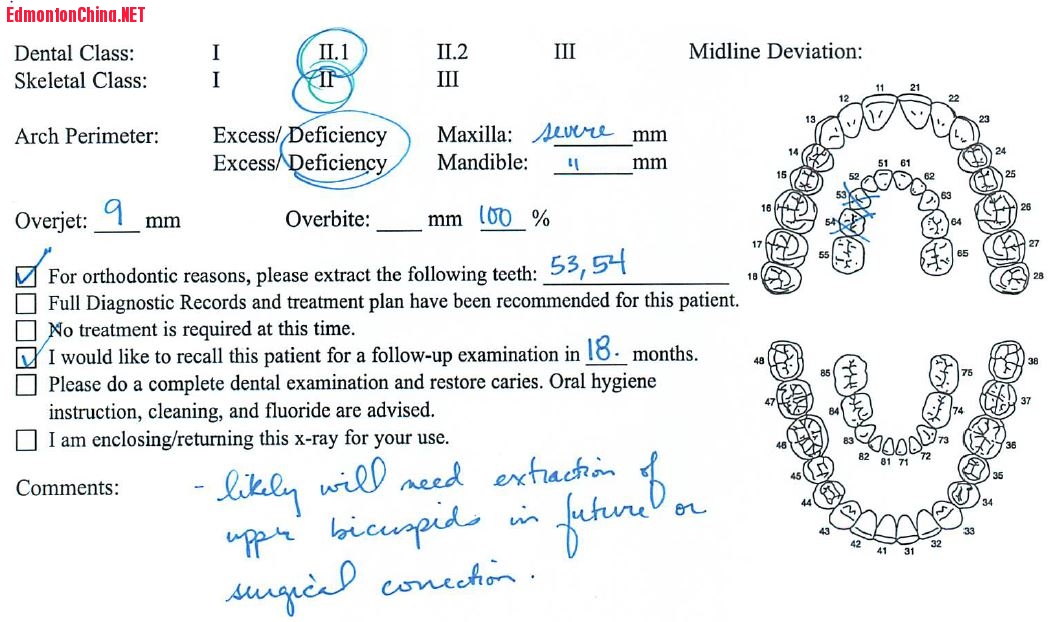 EdmontonChina.NET
Dental Class: I II.1 II.2 III Midline Deviation:
Skeletal Class: I II III
Arch Perimeter: Excess/ Deficiency Maxilla: severe mm
Excess/ Deficiency Mandible: " mm
Overjet: 9 mm Overbite: ____ mm 100 %
For orthodontic reasons, please extract the following teeth: 53, 54
Full Diagnostic Records and treatment plan have been recommended for this patient.
No treatment is required at this time.
I would like to recall this patient for a follow-up examination in 18. months.
Please do a complete dental examination and restore caries. Oral hygiene
instruction, cleaning, and fluoride are advised.
I am enclosing/returning this x-ray for your use.
Comments: - likely will need extraction of
upper bicuspids in future or
surgical correction.
11 21
12 22
13 23
14 24
15 25
16 26
17 27
18 28
51 61
52 62
53 63
54 64
55 65
48 38
47 37
46 36
45 35
44 34
43 33
42 41 31 32
85 75
84 74
83 73
82 81 71 72